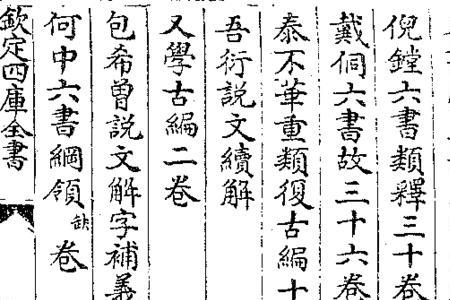 倪鏜六書類釋三十卷
戴侗六書故三十六卷
泰不華重類復古編十
吾衍說文續解
又學古編二卷
包希魯說文解字補義
何中六書綱領缺卷
欽定四庫全書